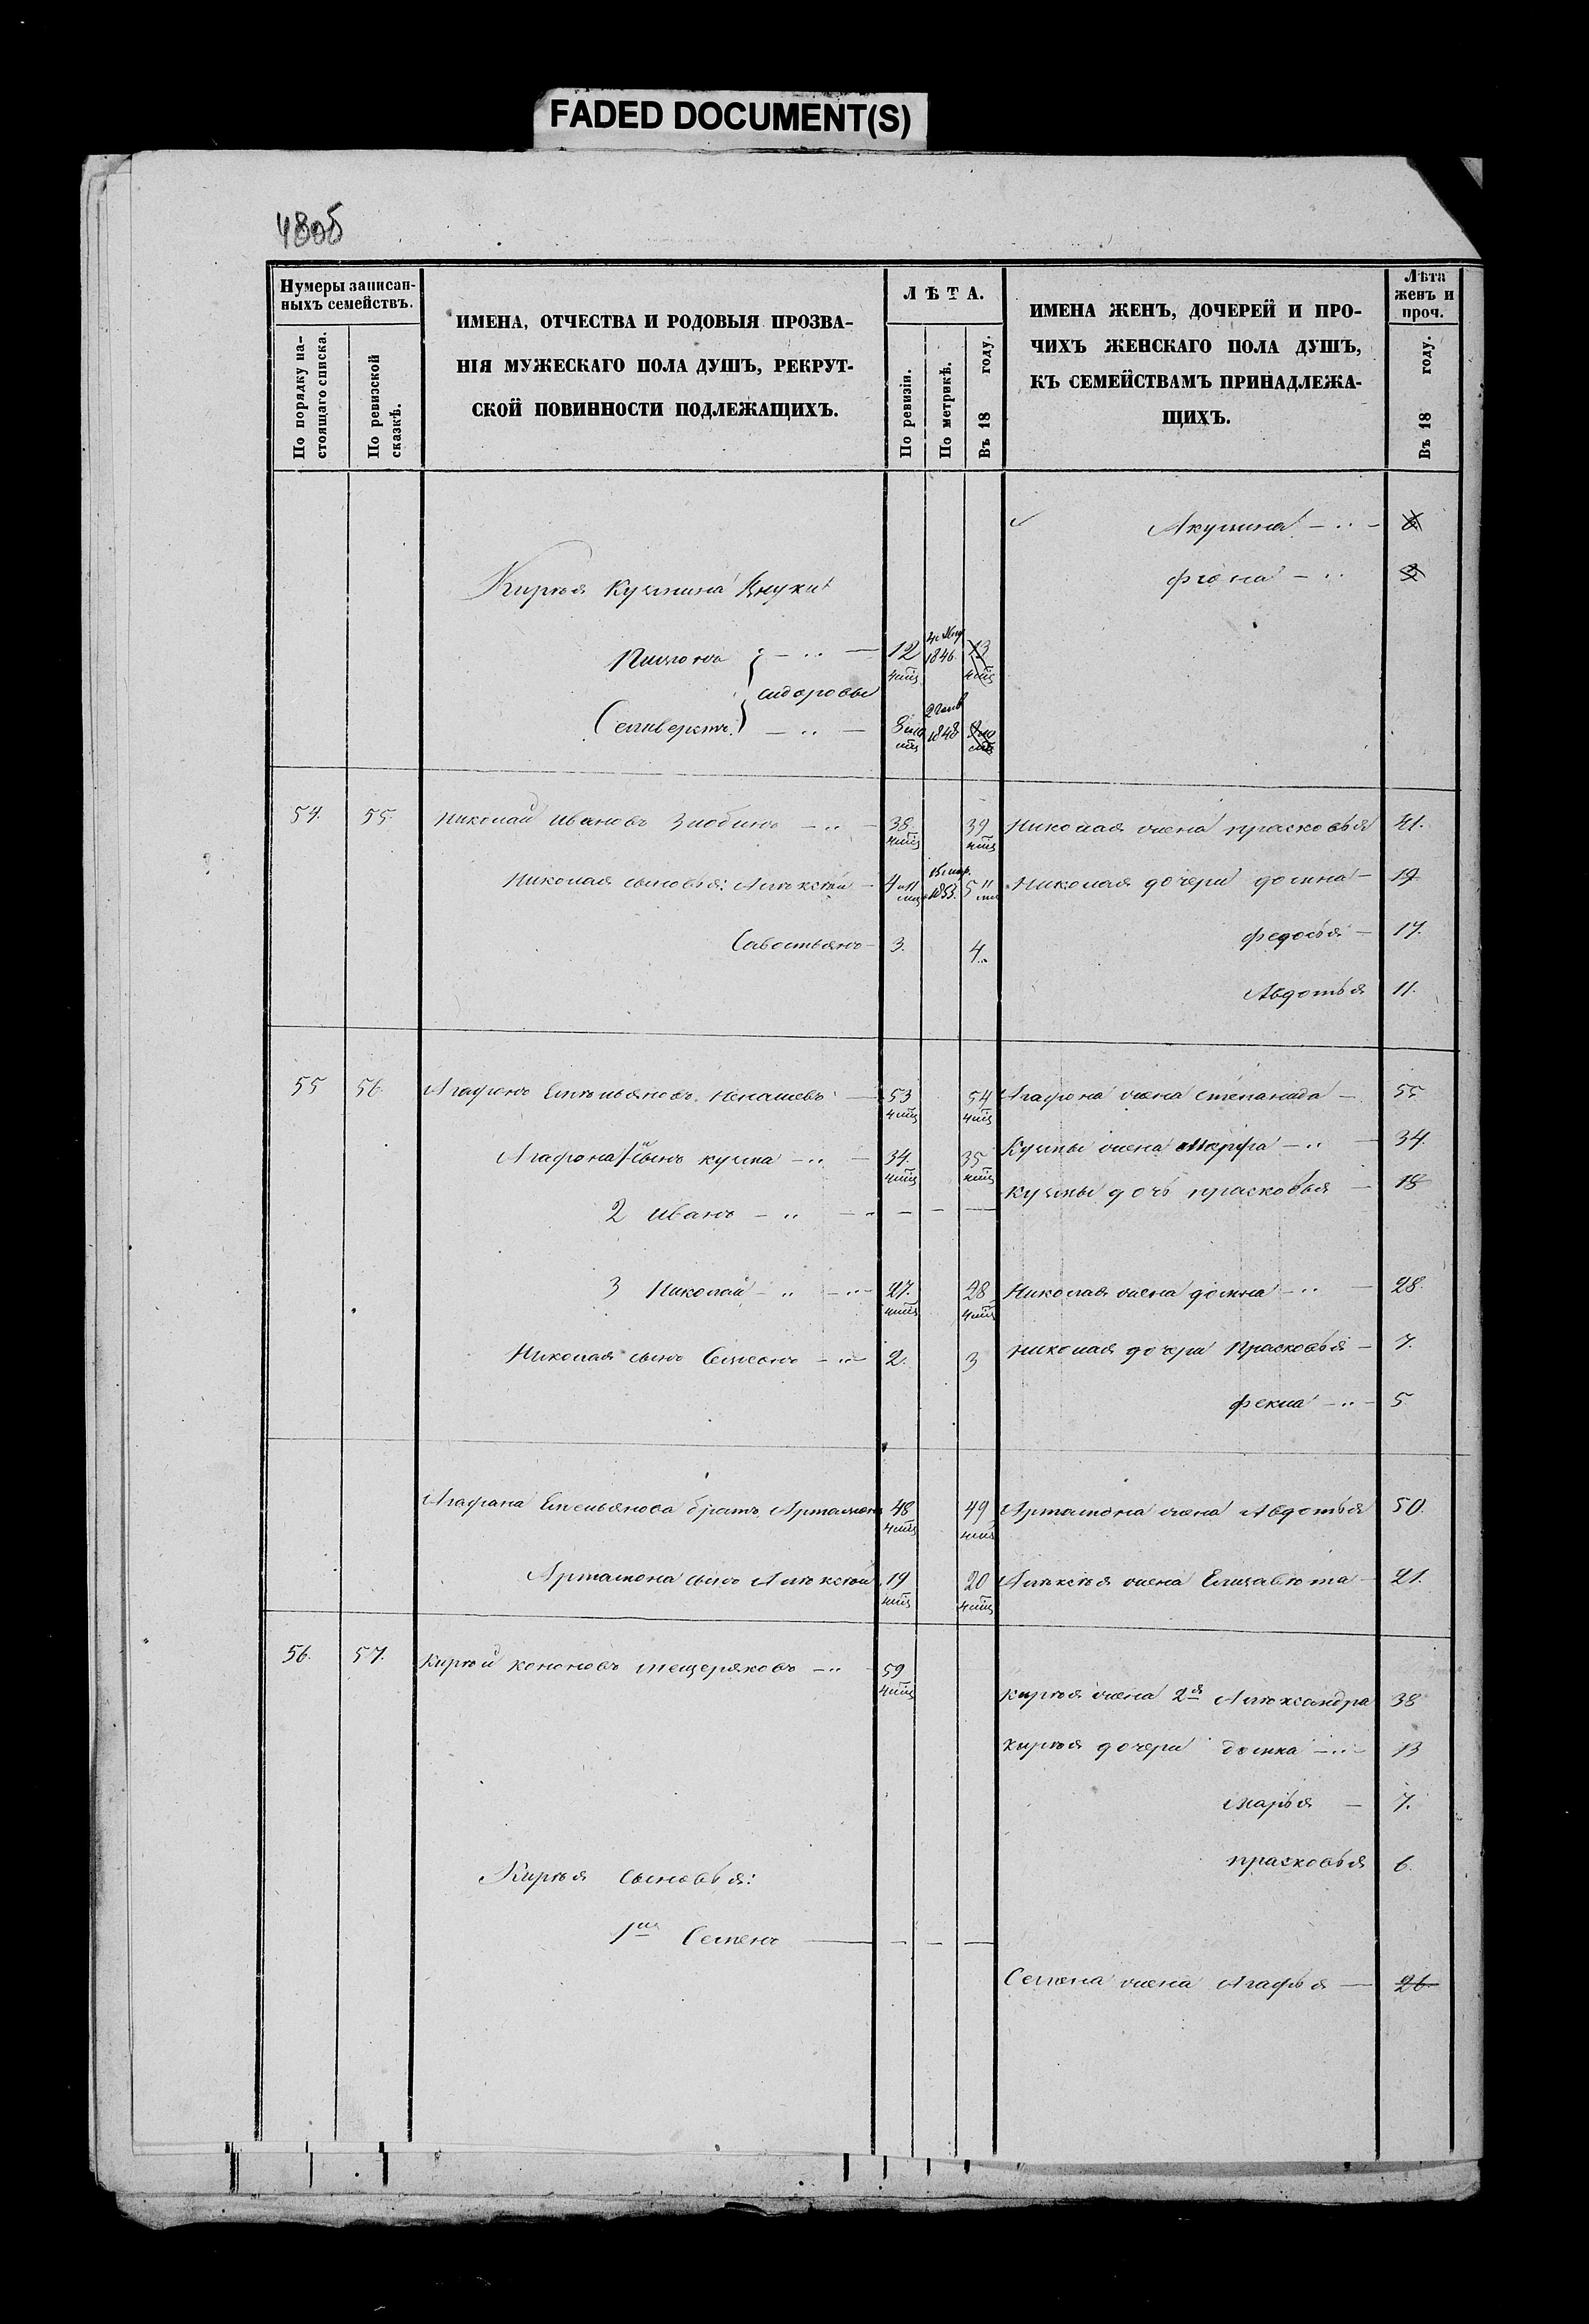 FADED DOCUMENT(S)
48об
Нумеры записан-
ныхъ семействъ.
По порядку на-
стоящаго списка.
По ревизской
сказкѣ.
ИМЕНА, ОТЧЕСТВА И РОДОВЫЯ ПРОЗВА-
НІЯ МУЖЕСКАГО ПОЛА ДУШЪ, РЕКРУТ-
СКОЙ ПОВИННОСТИ ПОДЛЕЖАЩИХЪ.
ЛѢТА.
По ревизіи.
По метрикѣ.
Въ 18 году.
ИМЕНА ЖЕНЪ, ДОЧЕРЕЙ И ПРО-
ЧИХЪ ЖЕНСКАГО ПОЛА ДУШЪ,
КЪ СЕМЕЙСТВАМЪ ПРИНАДЛЕЖА-
ЩИХЪ.
Лѣта
женъ и
проч.
Въ 18 году.
Акулина
Кирѣя Кузмина Внуки
Пимонъ 12 1846 13
Сидоровы
Селиверстъ 8 1848
54. 55. Николай Ивановъ Злобинъ 38 39 Николая жена Прасковья 41.
Николая сыновья: Алѣксѣй 4 1853. 5 Николая дочери Домна 19
Савостьянъ 3. 4. Федосья 17.
Авдотья 11.
55 56 Агафонъ Емѣльяновъ Ненашевъ 53 54 Агафона жена Степанида 55
Агафона 1й сынъ Кузма 34. 35 Кузмы жена Марфа 34.
Кузмы дочь Прасковья 15
2 Иванъ
3 Николай 27. 28 Николая жена Домна 28.
Николая сынъ Семенъ 2. 3 Николая дочери Прасковья 7.
Фекла 5
Агафана Емельянова братъ Артамонъ 48 49 Артамона жена Авдотья 50.
Артамона сынъ Алѣксѣй 19 20 Алѣксѣя жена Елизавѣта 21.
56. 57. Кирѣй Кононовъ Мещеряковъ 59
Кирѣя жена 2я Алѣксандра 38
Кирѣя дочери Домна 13
Марья 7.
Прасковья 6.
Кирѣя сыновья:
1й Семенъ
Семена жена Агафья 26